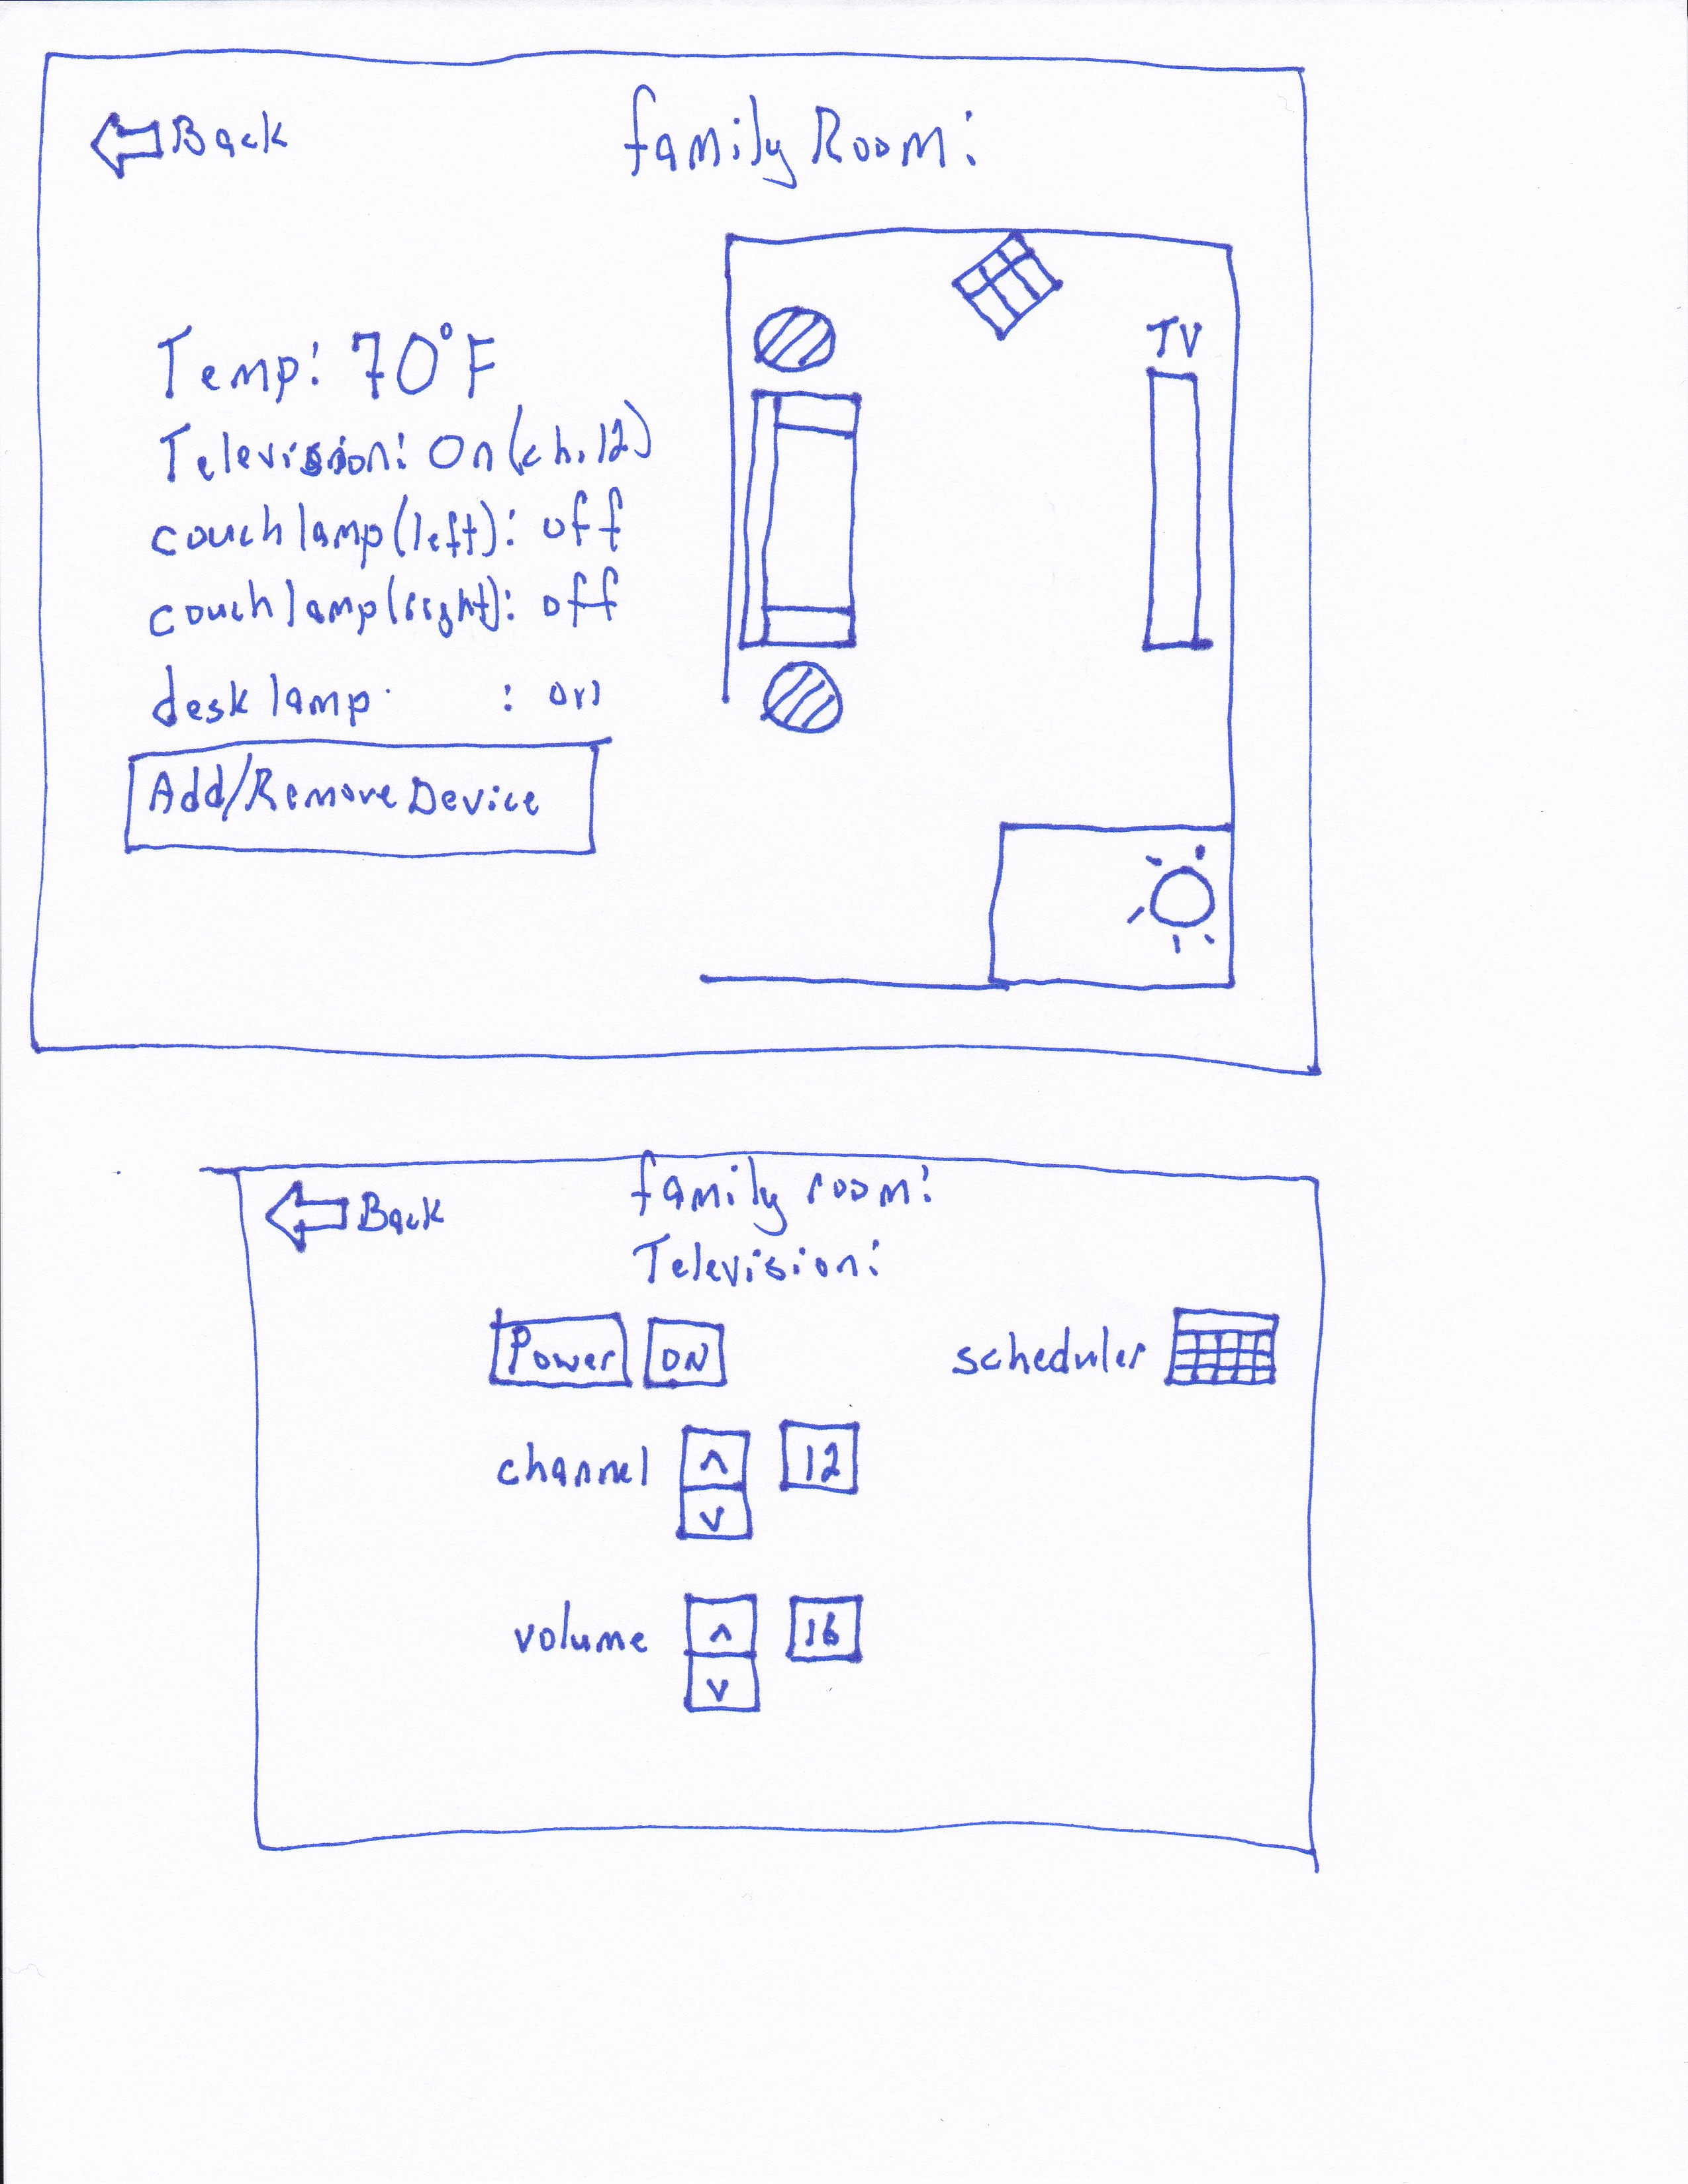 Back
family Room:
TV
Temp: 70°F
Television: On (ch. 12)
couch lamp (left): off
couch lamp (right): off
desk lamp : on
Add/Remove Device
Back
family room:
Television:
Power ON
scheduler
channel ^ 12
v
volume ^ 16
v